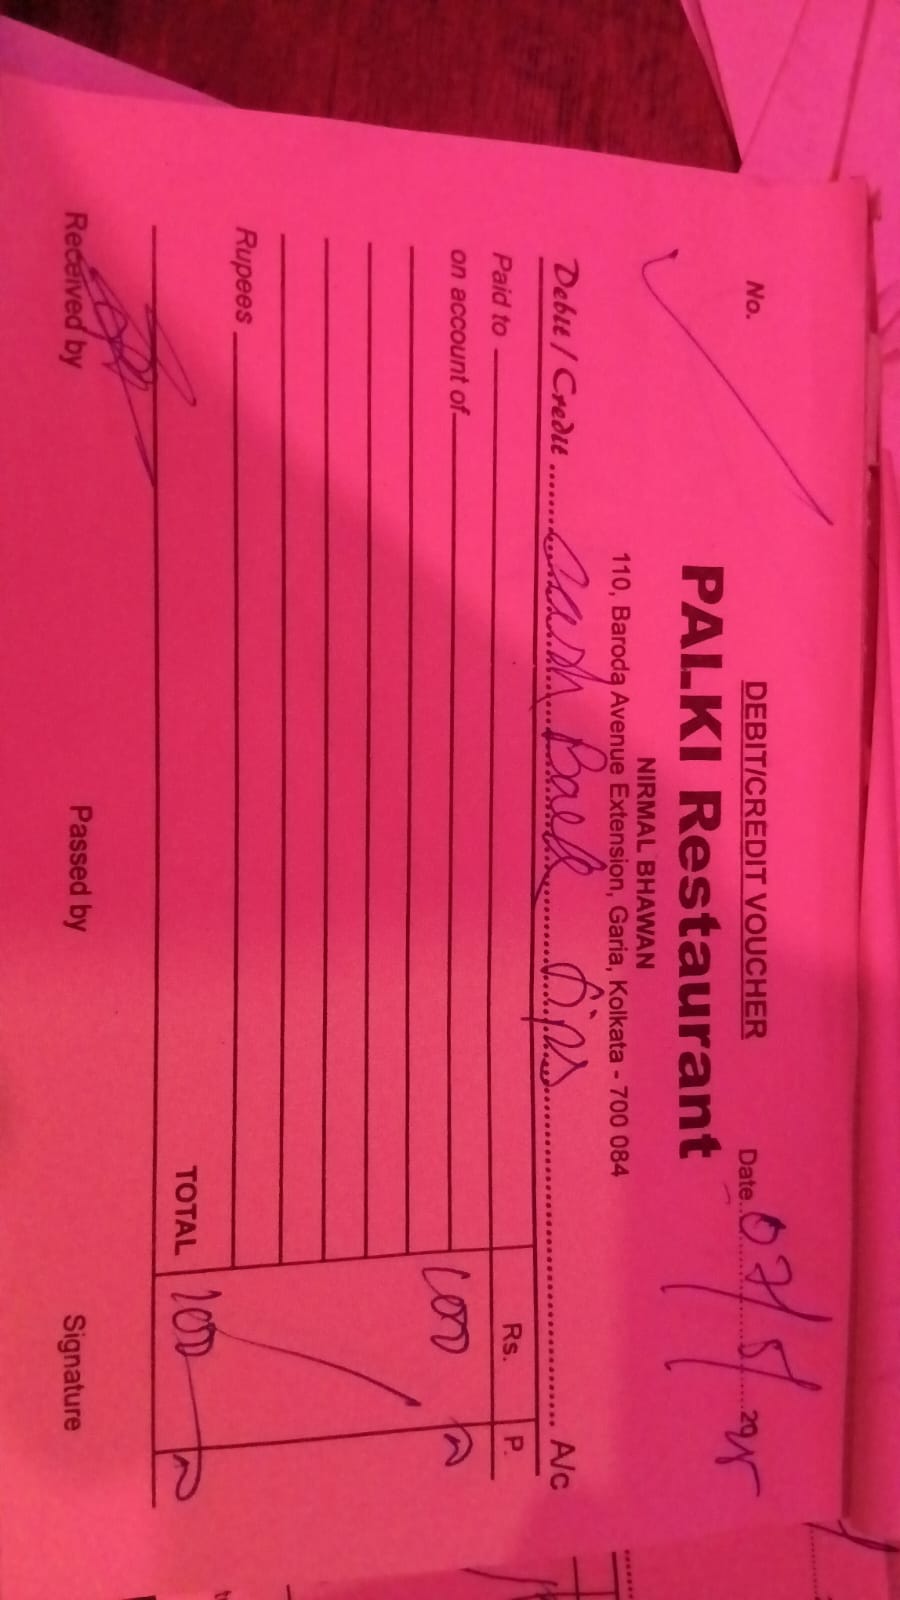 DEBIT/CREDIT VOUCHER
No.
Date 07/5/2025
PALKI Restaurant
NIRMAL BHAWAN
110, Baroda Avenue Extension, Garia, Kolkata - 700 084
Debit / Credit Cash Back A/c
Paid to Rs. P.
on account of 1000
Rupees
TOTAL 1000
Received by Passed by Signature